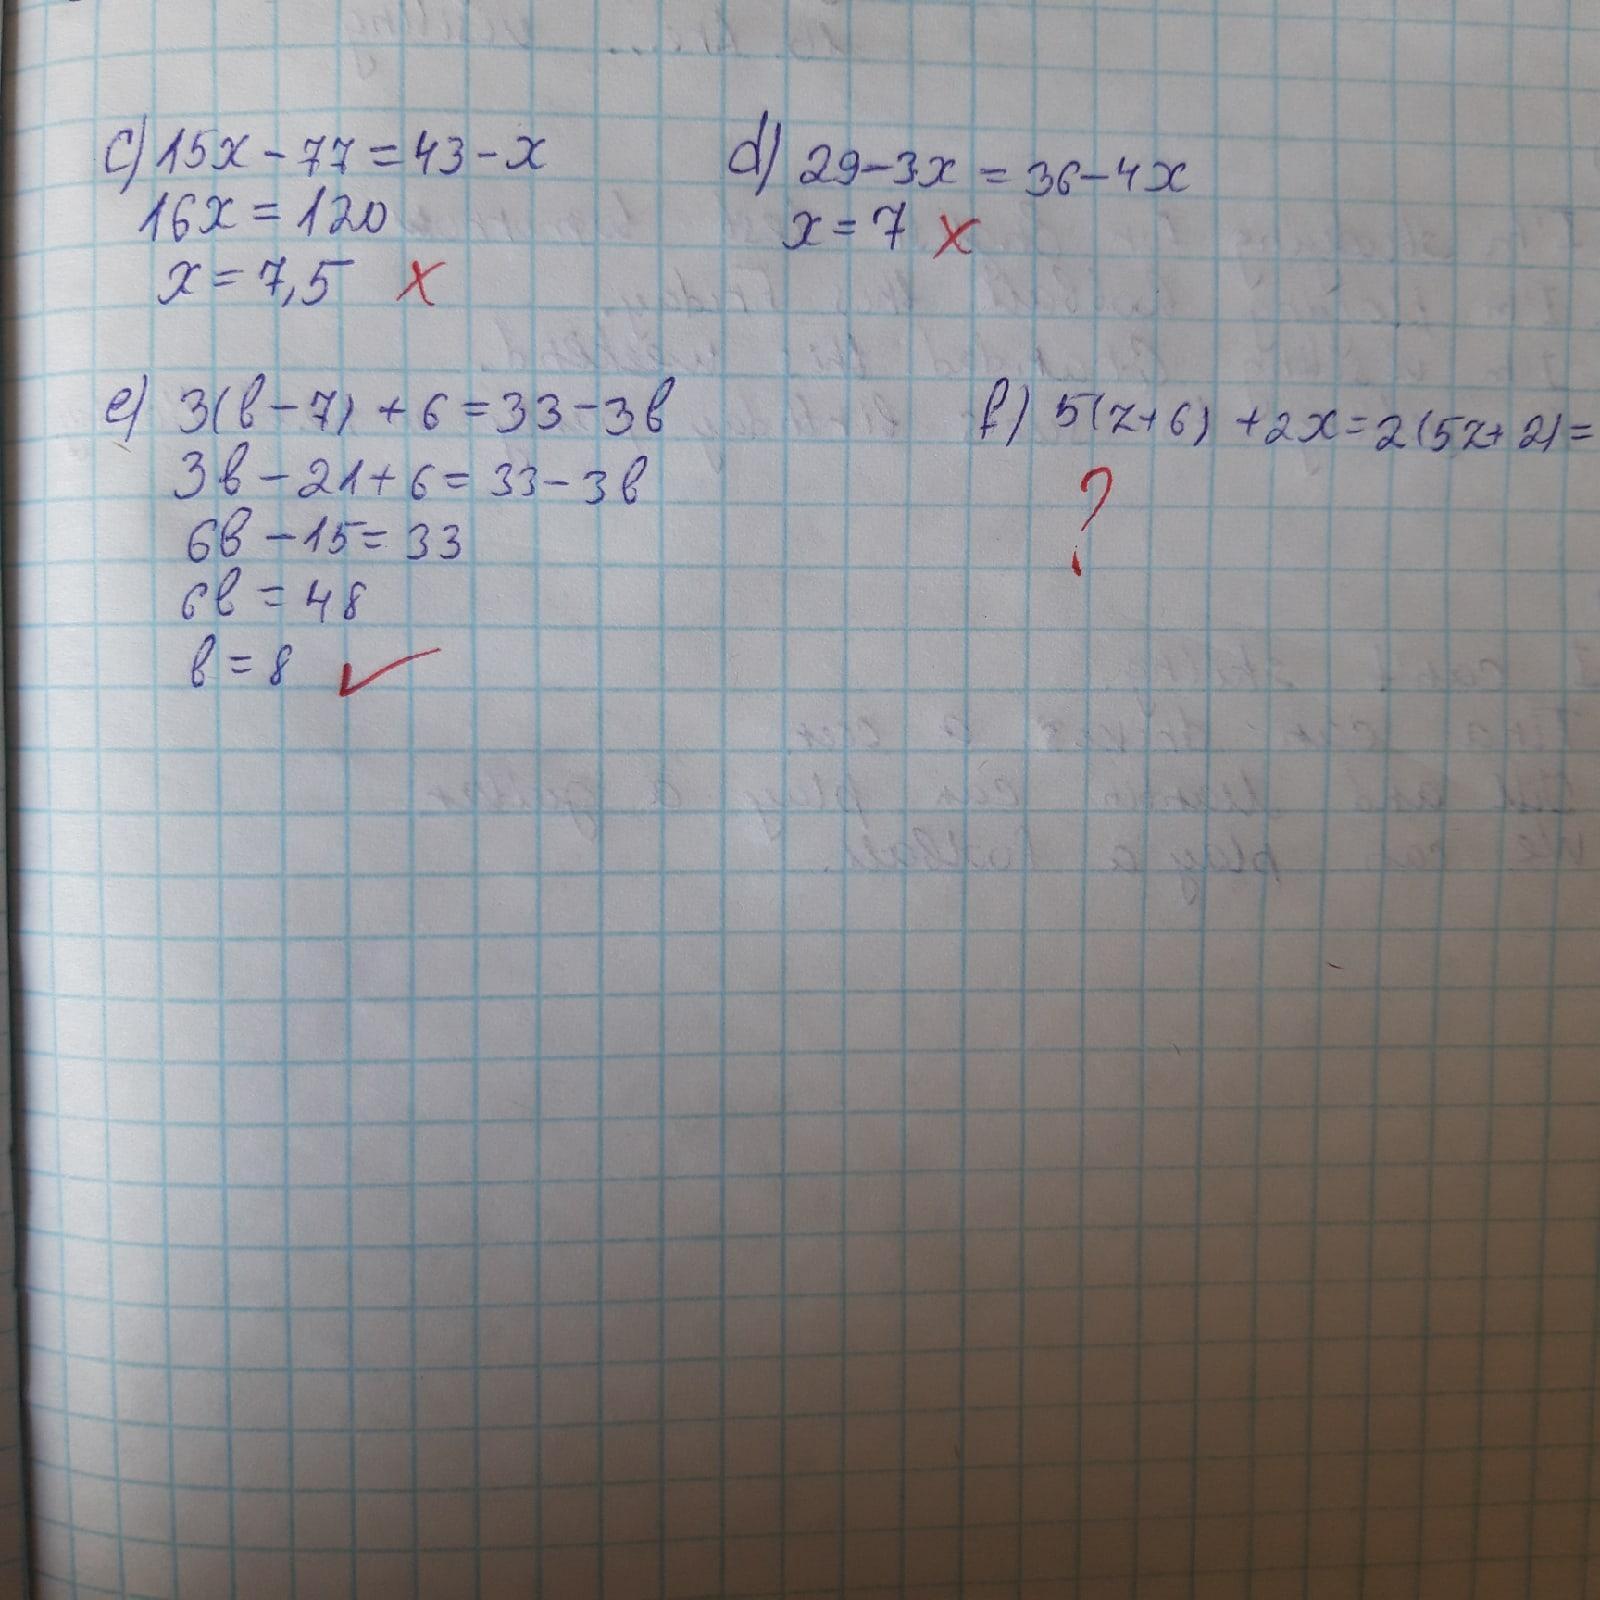 c) 15x - 77 = 43 - x
16x = 120
x = 7,5 x
d) 29 - 3x = 36 - 4x
x = 7 x
e) 3(b - 7) + 6 = 33 - 3b
3b - 21 + 6 = 33 - 3b
6b - 15 = 33
6b = 48
b = 8 ✓
f) 5(z + 6) + 2x = 2(5z + 2) =
?